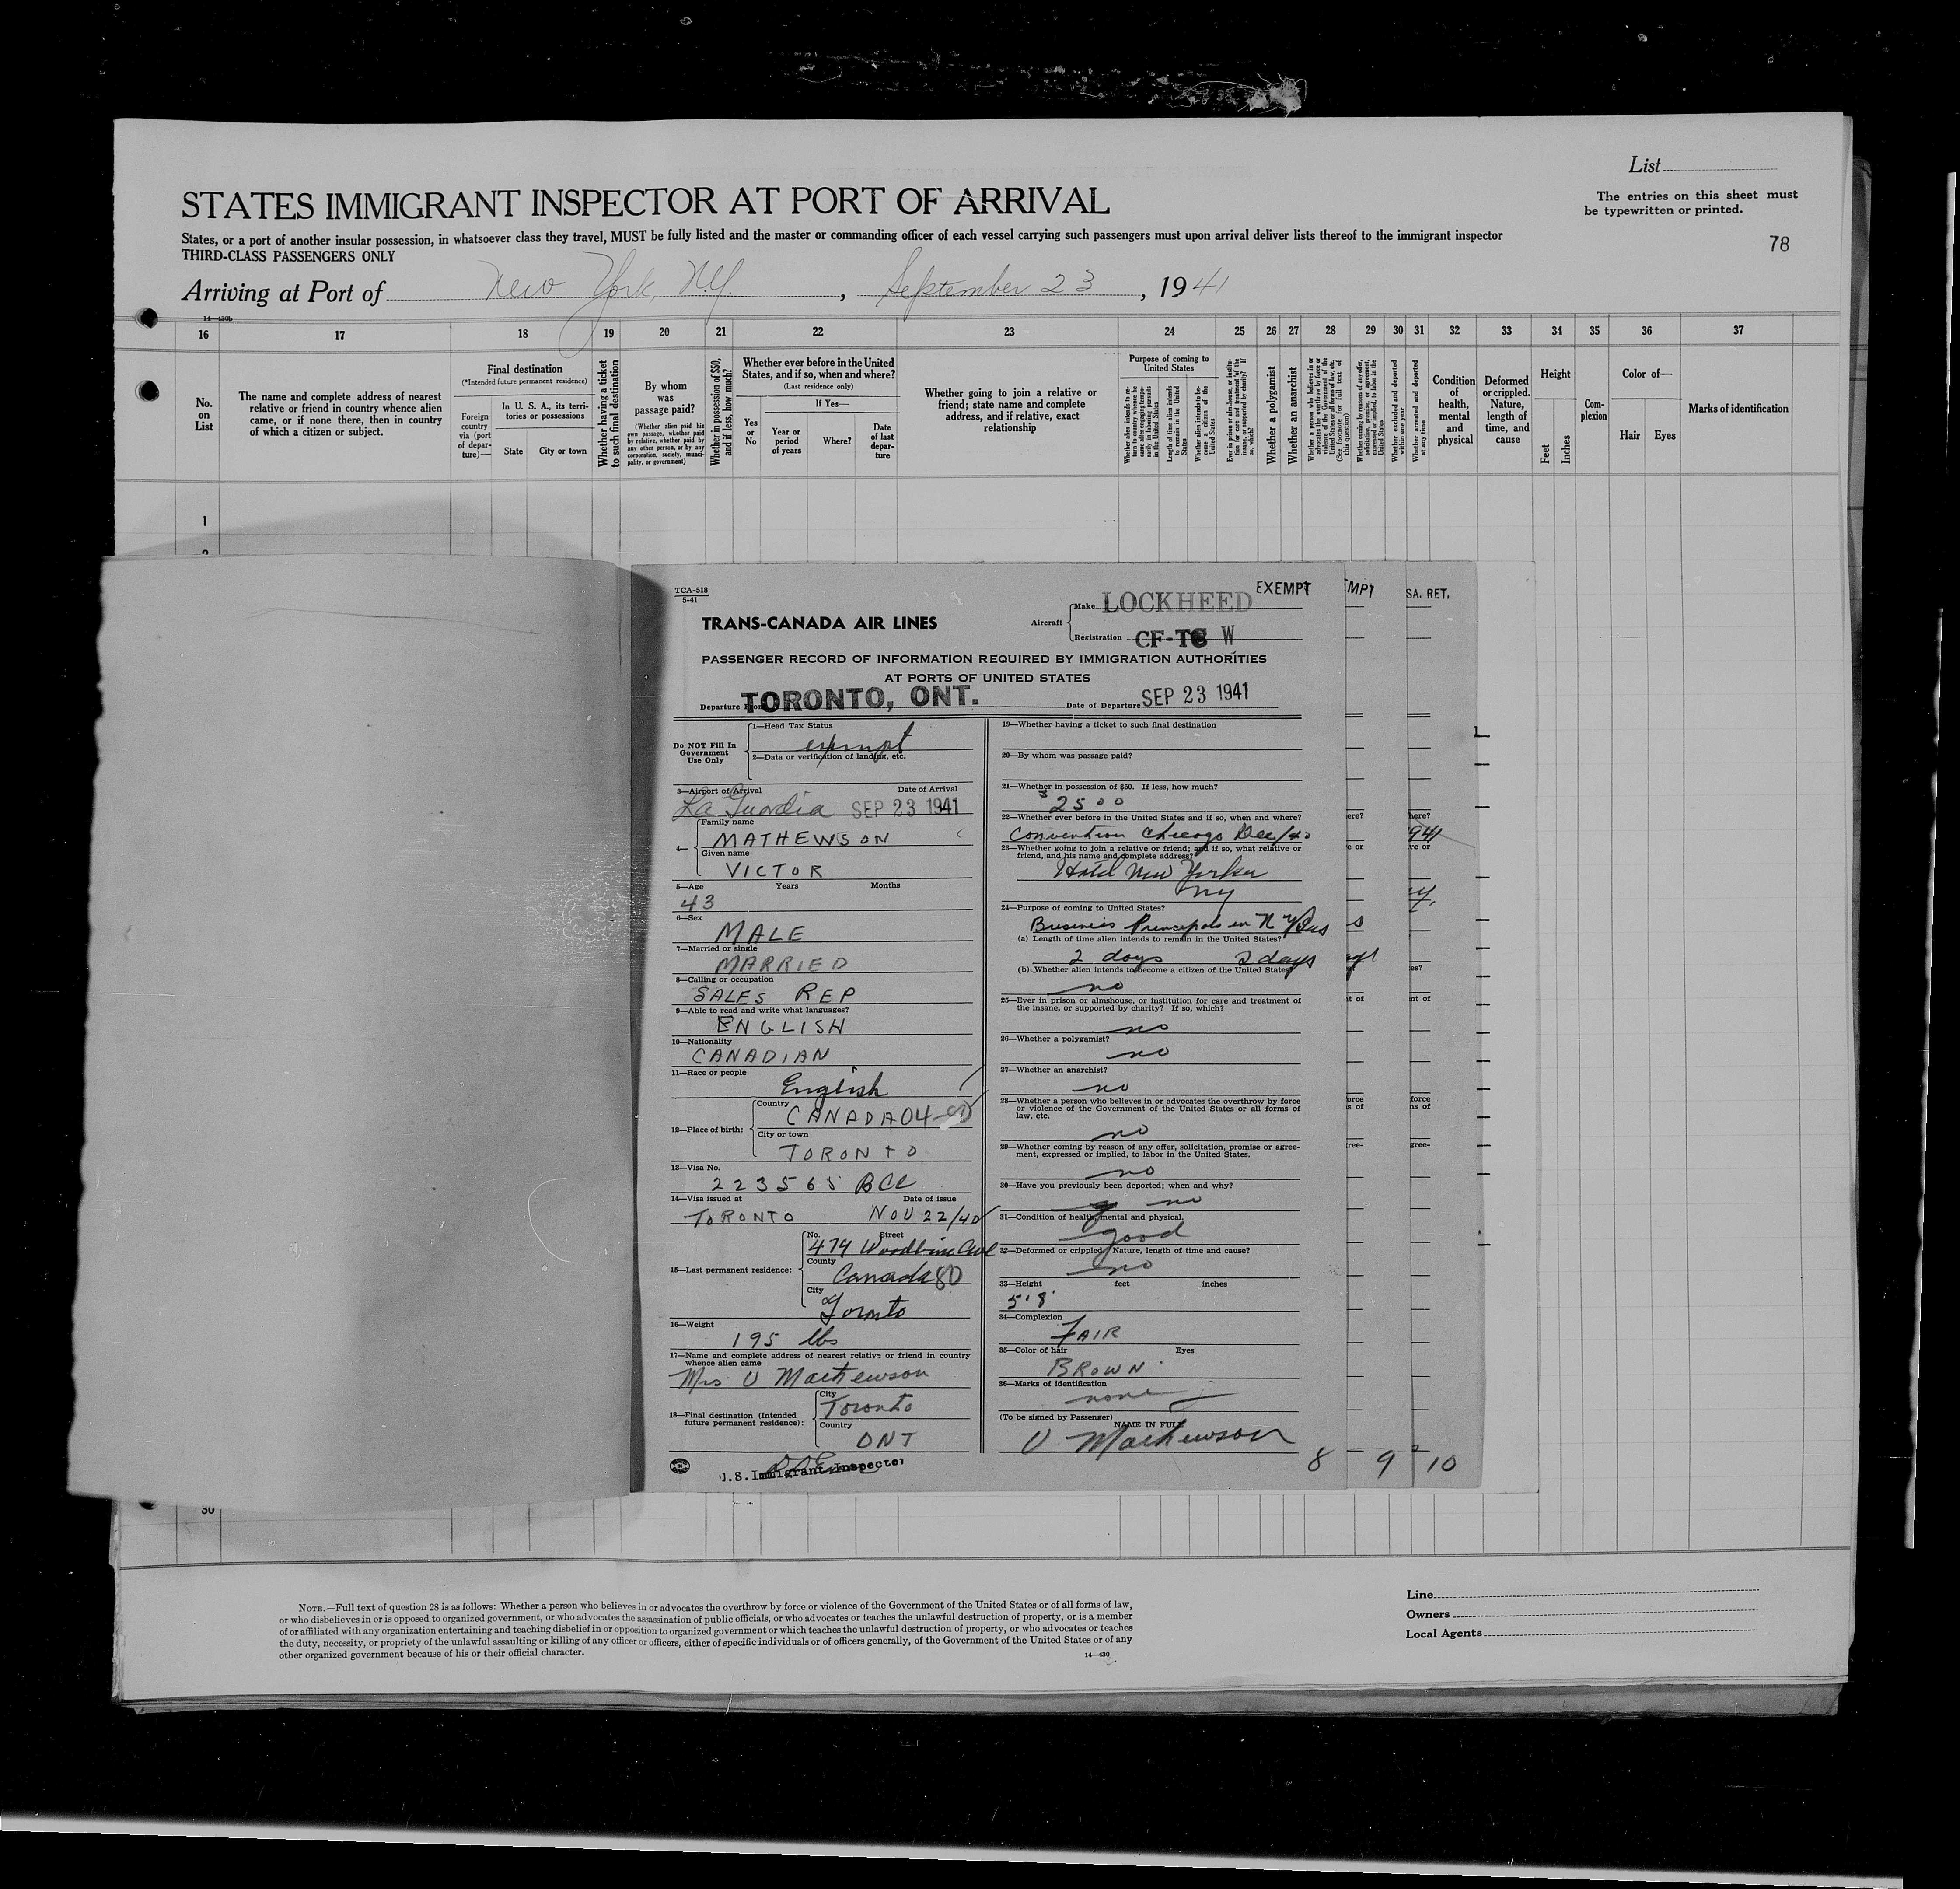 List
STATES IMMIGRANT INSPECTOR AT PORT OF ARRIVAL
The entries on this sheet must
be typewritten or printed.
States, or a port of another insular possession, in whatsoever class they travel, MUST be fully listed and the master or commanding officer of each vessel carrying such passengers must upon arrival deliver lists thereof to the immigrant inspector
THIRD-CLASS PASSENGERS ONLY
78
Arriving at Port of New York, N.Y., September 23, 1941
14—430b
16 17 18 19 20 21 22 23 24 25 26 27 28 29 30 31 32 33 34 35 36 37
No. on List
The name and complete address of nearest
relative or friend in country whence alien
came, or if none there, then in country
of which a citizen or subject.
Final destination
(*Intended future permanent residence)
Foreign country via (port of departure)—
In U. S. A., its territories or possessions
State
City or town
Whether having a ticket to such final destination
By whom was passage paid?
(Whether alien paid his own passage, whether paid by relative, whether paid by any other person, or by any corporation, society, municipality, or government)
Whether in possession of $50, and if less, how much?
Whether ever before in the United
States, and if so, when and where?
(Last residence only)
Yes or No
If Yes—
Year or period of years
Where?
Date of last departure
Whether going to join a relative or
friend; state name and complete
address, and if relative, exact
relationship
Purpose of coming to
United States
Length of time alien intends to remain in the United States
Whether alien intends to become a citizen of the United States
Whether a polygamist
Whether an anarchist
Whether excluded and deported within one year
Whether arrested and deported at any time
Condition of health, mental and physical
Deformed or crippled. Nature, length of time, and cause
Height
Feet
Inches
Complexion
Color of—
Hair
Eyes
Marks of identification
1
2
TCA-518
5-41
TRANS-CANADA AIR LINES
Aircraft
Make LOCKHEED
EXEMPT
Registration CF-TC W
PASSENGER RECORD OF INFORMATION REQUIRED BY IMMIGRATION AUTHORITIES
AT PORTS OF UNITED STATES
Departure From TORONTO, ONT.
Date of Departure SEP 23 1941
Do NOT Fill In
Government
Use Only
1—Head Tax Status
exempt
2—Data or verification of landing, etc.
3—Airport of Arrival Date of Arrival
La Guardia SEP 23 1941
4—
Family name
MATHEWSON
Given name
VICTOR
5—Age Years Months
43
6—Sex
MALE
7—Married or single
MARRIED
8—Calling or occupation
SALES REP
9—Able to read and write what languages?
ENGLISH
10—Nationality
CANADIAN
11—Race or people
English
12—Place of birth:
Country
CANADA 04-80
City or town
TORONTO
13—Visa No.
223565 BCC
14—Visa issued at Date of issue
TORONTO NOV 22/40
15—Last permanent residence:
No. Street
474 Woodbine Ave
County
Canada 80
City
Toronto
16—Weight
195 lbs
17—Name and complete address of nearest relative or friend in country
whence alien came
Mrs V Mathewson
18—Final destination (Intended
future permanent residence):
City
Toronto
Country
ONT
U.S. Immigrant Inspector
19—Whether having a ticket to such final destination
20—By whom was passage paid?
21—Whether in possession of $50. If less, how much?
$2500
22—Whether ever before in the United States and if so, when and where?
Convention Chicago Dec/40
23—Whether going to join a relative or friend; and if so, what relative or
friend, and his name and complete address?
Hotel New Yorker
NY
24—Purpose of coming to United States?
Business Principals in N Y Bus
(a) Length of time alien intends to remain in the United States?
2 days 2 days
(b) Whether alien intends to become a citizen of the United States?
no
25—Ever in prison or almshouse, or institution for care and treatment of
the insane, or supported by charity? If so, which?
no
26—Whether a polygamist?
no
27—Whether an anarchist?
no
28—Whether a person who believes in or advocates the overthrow by force
or violence of the Government of the United States or all forms of
law, etc.
no
29—Whether coming by reason of any offer, solicitation, promise or agree-
ment, expressed or implied, to labor in the United States.
no
30—Have you previously been deported; when and why?
no
31—Condition of health, mental and physical.
good
32—Deformed or crippled. Nature, length of time and cause?
no
33—Height feet inches
5'8"
34—Complexion
FAIR
35—Color of hair Eyes
BROWN
36—Marks of identification
none
(To be signed by Passenger)
NAME IN FULL
V Mathewson
8 9 10
EMPT
SA. RET.
30
NOTE.—Full text of question 28 is as follows: Whether a person who believes in or advocates the overthrow by force or violence of the Government of the United States or of all forms of law,
or who disbelieves in or is opposed to organized government, or who advocates the assassination of public officials, or who advocates or teaches the unlawful destruction of property, or is a member
of or affiliated with any organization entertaining and teaching disbelief in or opposition to organized government or which teaches the unlawful destruction of property, or who advocates or teaches
the duty, necessity, or propriety of the unlawful assaulting or killing of any officer or officers, either of specific individuals or of officers generally, of the Government of the United States or of any
other organized government because of his or their official character.
14—430
Line
Owners
Local Agents